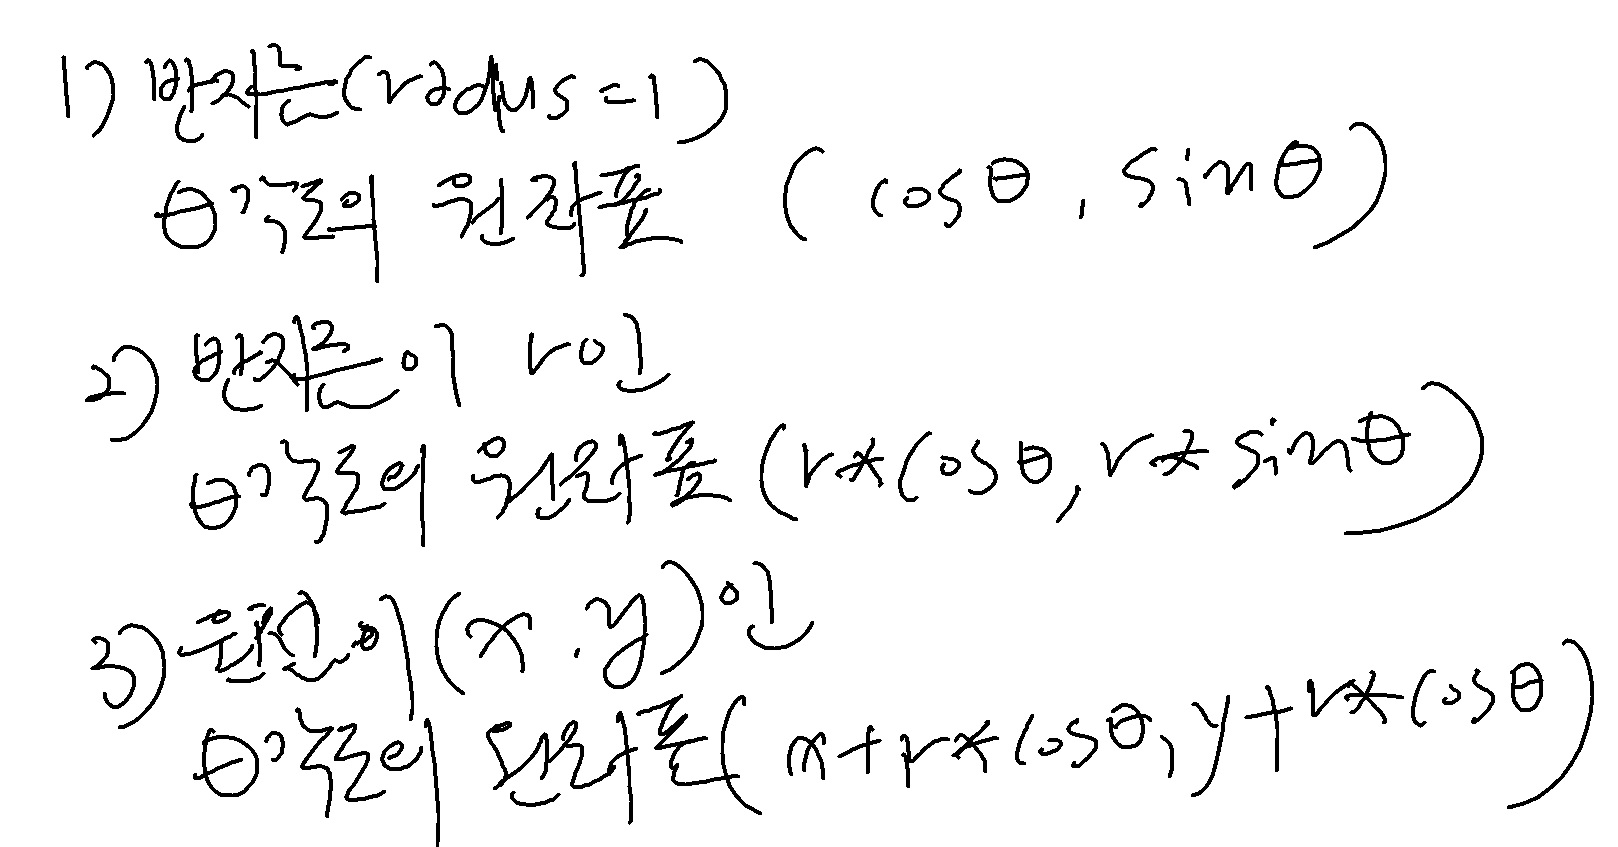 1) 반지름(radius=1)
θ각도의 원좌표 (cosθ, sinθ)
2) 반지름이 r인
θ각도의 원좌표 (r*cosθ, r*sinθ)
3) 원점이 (x.y)인
θ각도의 원좌표(x+r*cosθ, y+r*cosθ)